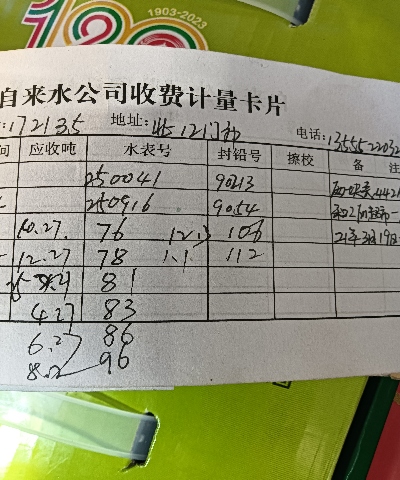 1903-2023
自来水公司收费计量卡片
:172135 地址: 12门 电话:1355522032
间 应收吨 水表号 封铅号 擦校 备 注
250041 90213
250916 9054
10.27. 76 12.1 106 21年3月19日
12.27 78 1.1 112
81
4.27 83
6.27 86
8.2 96